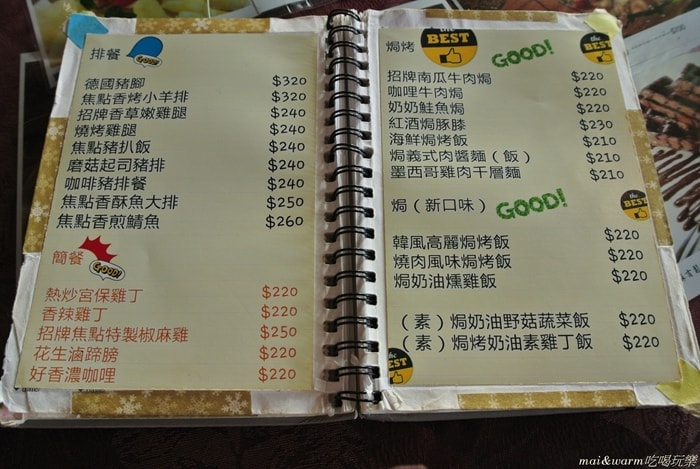 排餐
GOOD!
德國豬腳 $320
焦點香烤小羊排 $320
招牌香草嫩雞腿 $240
燒烤雞腿 $240
焦點豬扒飯 $240
磨菇起司豬排 $240
咖啡豬排餐 $240
焦點香酥魚大排 $250
焦點香煎鯖魚 $260
簡餐
GOOD!
熱炒宮保雞丁 $220
香辣雞丁 $220
招牌焦點特製椒麻雞 $250
花生滷蹄膀 $220
好香濃咖哩 $220
焗烤
the BEST
GOOD!
BEST
招牌南瓜牛肉焗 $220
咖哩牛肉焗 $220
奶奶鮭魚焗 $220
紅酒焗豚膝 $230
海鮮焗烤飯 $210
焗義式肉醬麵（飯） $210
墨西哥雞肉千層麵 $210
焗（新口味）
GOOD!
the BEST
韓風高麗焗烤飯 $220
燒肉風味焗烤飯 $220
焗奶油燻雞飯 $220
（素）焗奶油野菇蔬菜飯 $220
（素）焗烤奶油素雞丁飯 $220
the BEST
mai&warm吃喝玩樂